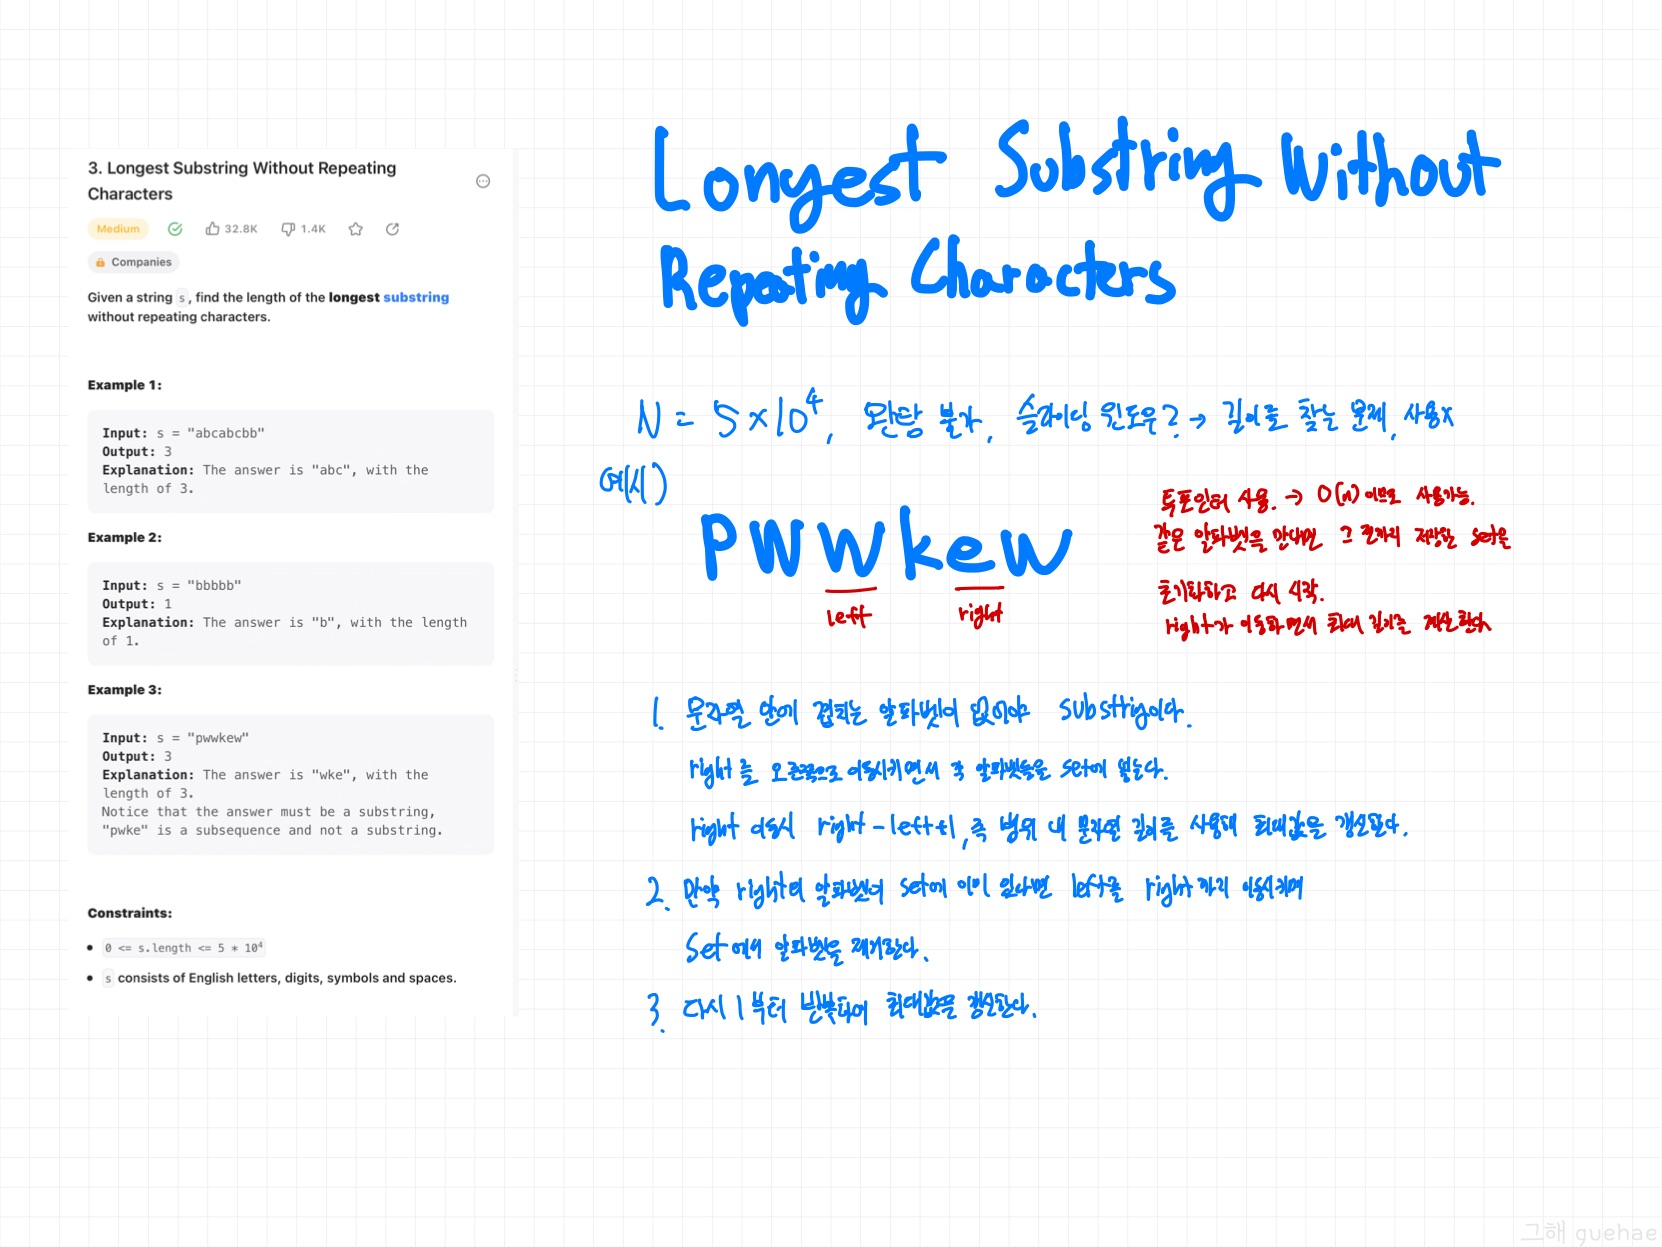 3. Longest Substring Without Repeating
Characters
Medium 32.8K 1.4K
Companies
Given a string s, find the length of the longest substring
without repeating characters.
Example 1:
Input: s = "abcabcbb"
Output: 3
Explanation: The answer is "abc", with the
length of 3.
Example 2:
Input: s = "bbbbb"
Output: 1
Explanation: The answer is "b", with the length
of 1.
Example 3:
Input: s = "pwwkew"
Output: 3
Explanation: The answer is "wke", with the
length of 3.
Notice that the answer must be a substring,
"pwke" is a subsequence and not a substring.
Constraints:
0 <= s.length <= 5 * 10⁴
s consists of English letters, digits, symbols and spaces.
Longest Substring Without
Repeating Characters
N = 5×10⁴, 완탐 불가, 슬라이딩 윈도우? → 길이를 찾는 문제, 사용x
예시)
pwwkew
left right
투포인터 사용. → O(n)이므로 사용가능.
같은 알파벳을 만나면 그 전까지 저장된 set을
초기화하고 다시 시작.
right가 이동하면서 최대 길이를 계산한다
1. 문자열 안에 겹치는 알파벳이 없어야 substring이다.
right를 오른쪽으로 이동시키면서 각 알파벳들을 set에 넣는다.
right 이동시 right-left+1, 즉 범위 내 문자열 길이를 사용해 최대값을 갱신한다.
2. 만약 right의 알파벳이 set에 이미 있다면 left를 right까지 이동시키며
set에서 알파벳을 제거한다.
3. 다시 1부터 반복하여 최대값을 갱신한다.
그해 guehae